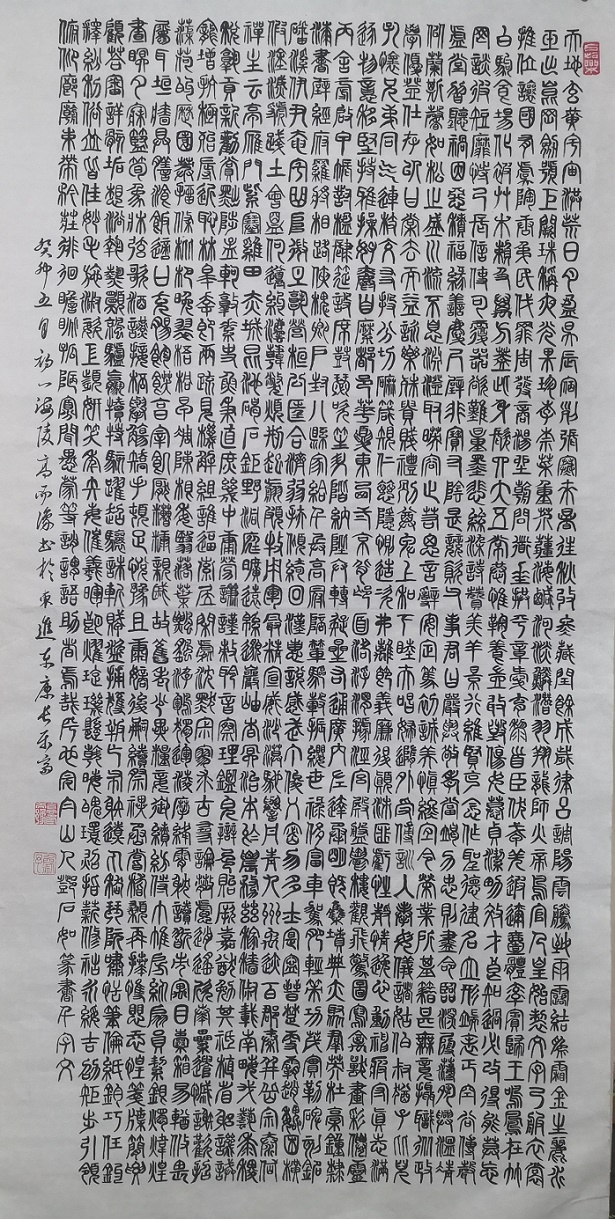 天地玄黃宇宙洪荒日月盈昃辰宿列張寒來暑往秋收冬藏閏餘成歲律呂調陽雲騰致雨露結為霜金生麗水
玉出崑岡劍號巨闕珠稱夜光果珍李柰菜重芥薑海鹹河淡鱗潛羽翔龍師火帝鳥官人皇始制文字乃服衣裳
推位讓國有虞陶唐弔民伐罪周發商湯坐朝問道垂拱平章愛育黎首臣伏戎羌遐邇壹體率賓歸王鳴鳳在竹
白駒食場化被草木賴及萬方蓋此身髮四大五常恭惟鞠養豈敢毀傷女慕貞潔男效才良知過必改得能莫忘
罔談彼短靡恃己長信使可覆器欲難量墨悲絲染詩讚羔羊景行維賢克念作聖德建名立形端表正空谷傳聲
虛堂習聽禍因惡積福緣善慶尺璧非寶寸陰是競資父事君曰嚴與敬孝當竭力忠則盡命臨深履薄夙興溫凊
似蘭斯馨如松之盛川流不息淵澄取映容止若思言辭安定篤初誠美慎終宜令榮業所基籍甚無竟攝職從政
學優登仕存以甘棠去而益詠樂殊貴賤禮別尊卑上和下睦夫唱婦隨外受傅訓入奉母儀諸姑伯叔猶子比兒
孔懷兄弟同氣連枝交友投分切磨箴規仁慈隱惻造次弗離節義廉退顛沛匪虧性靜情逸心動神疲守真志滿
逐物意移堅持雅操好爵自縻都邑華夏東西二京背邙面洛浮渭據涇宮殿盤鬱樓觀飛驚圖寫禽獸畫彩仙靈
丙舍傍啟甲帳對楹肆筵設席鼓瑟吹笙升階納陛弁轉疑星右通廣內左達承明既集墳典亦聚群英杜稾鍾隸
漆書壁經府羅將相路俠槐卿戶封八縣家給千兵高冠陪輦驅轂振纓世祿侈富車駕肥輕策功茂實勒碑刻銘
磻溪伊尹佐時阿衡奄宅曲阜微旦孰營桓公匡合濟弱扶傾綺回漢惠說感武丁俊乂密勿多士寔寧晉楚更霸趙魏困橫
假途滅虢踐土會盟何遵約法韓弊煩刑起翦頗牧用軍最精宣威沙漠馳譽丹青九州禹跡百郡秦并嶽宗泰岱
禪主云亭雁門紫塞雞田赤城昆池碣石鉅野洞庭曠遠綿邈巖岫杳冥治本於農務茲稼穡俶載南畝我藝黍稷
稅熟貢新勸賞黜陟孟軻敦素史魚秉直庶幾中庸勞謙謹敕聆音察理鑑貌辨色貽厥嘉猷勉其祗植省躬譏誡
寵增抗極殆辱近恥林皋幸即兩疏見機解組誰逼索居閒處沈默寂寥求古尋論散慮逍遙欣奏累遣慼謝歡招
渠荷的歷園莽抽條枇杷晚翠梧桐早凋陳根委翳落葉飄颻游鵾獨運凌摩絳霄耽讀翫市寓目囊箱易輶攸畏
屬耳垣牆具膳餐飯適口充腸飽飫烹宰飢厭糟糠親戚故舊老少異糧妾御績紡侍巾帷房紈扇圓潔銀燭煒煌
晝眠夕寐藍筍象床弦歌酒讌接杯舉觴矯手頓足悅豫且康嫡後嗣續祭祀烝嘗稽顙再拜悚懼恐惶牋牒簡要
顧答審詳骸垢想浴執熱願涼驢騾犢特駭躍超驤誅斬賊盜捕獲叛亡布射遼丸嵇琴阮嘯恬筆倫紙鈞巧任釣
釋紛利俗並皆佳妙毛施淑姿工顰妍笑年矢每催曦暉朗曜璇璣懸斡晦魄環照指薪修祜永綏吉劭矩步引領
俯仰廊廟束帶矜莊徘徊瞻眺孤陋寡聞愚蒙等誚謂語助者焉哉乎也完白山人鄧石如篆書千字文
癸卯五月初一海陵高而深書於東進東康長樂齋